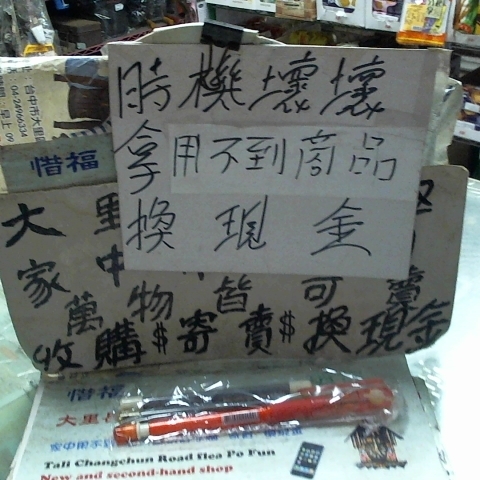 時機壞壞
拿用不到商品
換現金
台中市大里區
04-24966334
惜福
大里
家中
萬物皆可賣
收購$寄賣$換現金
惜福
大里
Tali Changchun Road flea Po Fun
New and second-hand shop